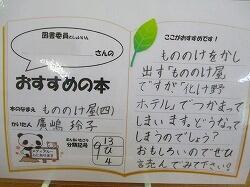 図書委員
さんの
おすすめの本
本のなまえ もののけ屋(四)
かいた人 廣嶋 玲子
分類記号
913
ひ
4
ここがおすすめです！
もののけをかし
出す「もののけ屋」
ですが「化け野
ホテル」でつかまってし
まいます。どうなって
しまうのでしょう？
おもしろいのでぜひ
読んでみて下さい。